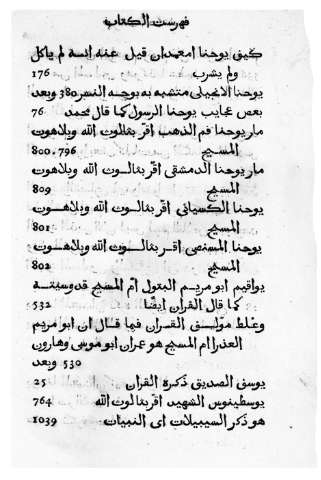 فهرست الكتاب
كيف يوحنا امعمدان قيل عنه انه لم ياكل
ولم يشرب 176
يوحنا الانجيلي متشبه به بوجه النسر 380 وبعد
بعض عجايب يوحنا الرسول كما قال محمد 76
ماريوحنا فم الذهب اقر بثالوث الله وبلاهوت
المسيح 796 .800
ماريوحنا الدمشقي اقر بثالوث الله وبلاهوت
المسيح 809
يوحنا الكسياني اقر بثالوث الله وبلاهوت
المسيح 801
يوحنا اقر بثالوث الله وبلاهوت
المسيح 802
يواقيم ابو مريم البتول ام المسيح قديسة
كما قال القران ايضا 532
وغلط مؤلف القران فيها قال ان ابو مريم
العذرا ام المسيح هو عمران ابو موسى وهارون
530 وبعد
يوسف الصديق ذكره القران 25
يوسطينوس الشهيد اقر بثالوث الله 764
هو ذكر السيبيلات اى النبيات 1039